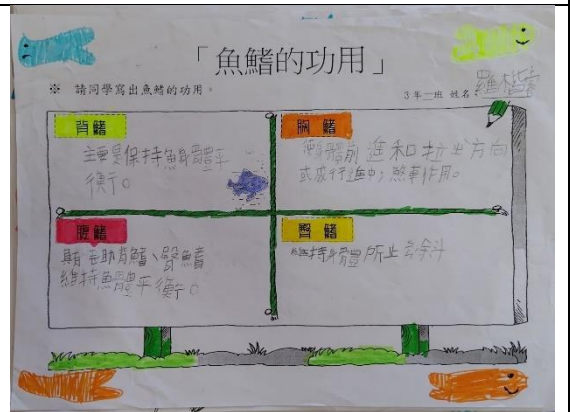 「魚鰭的功用」
※ 請同學寫出魚鰭的功用。
3年二班 姓名：羅楷
背鰭
主要是保持魚身體平
衡。
胸鰭
前進和
方向
或 行進中，煞車作用。
腹鰭
具有
助背鰭、臀鰭
維持魚體平衡。
臀鰭
維持身體防止